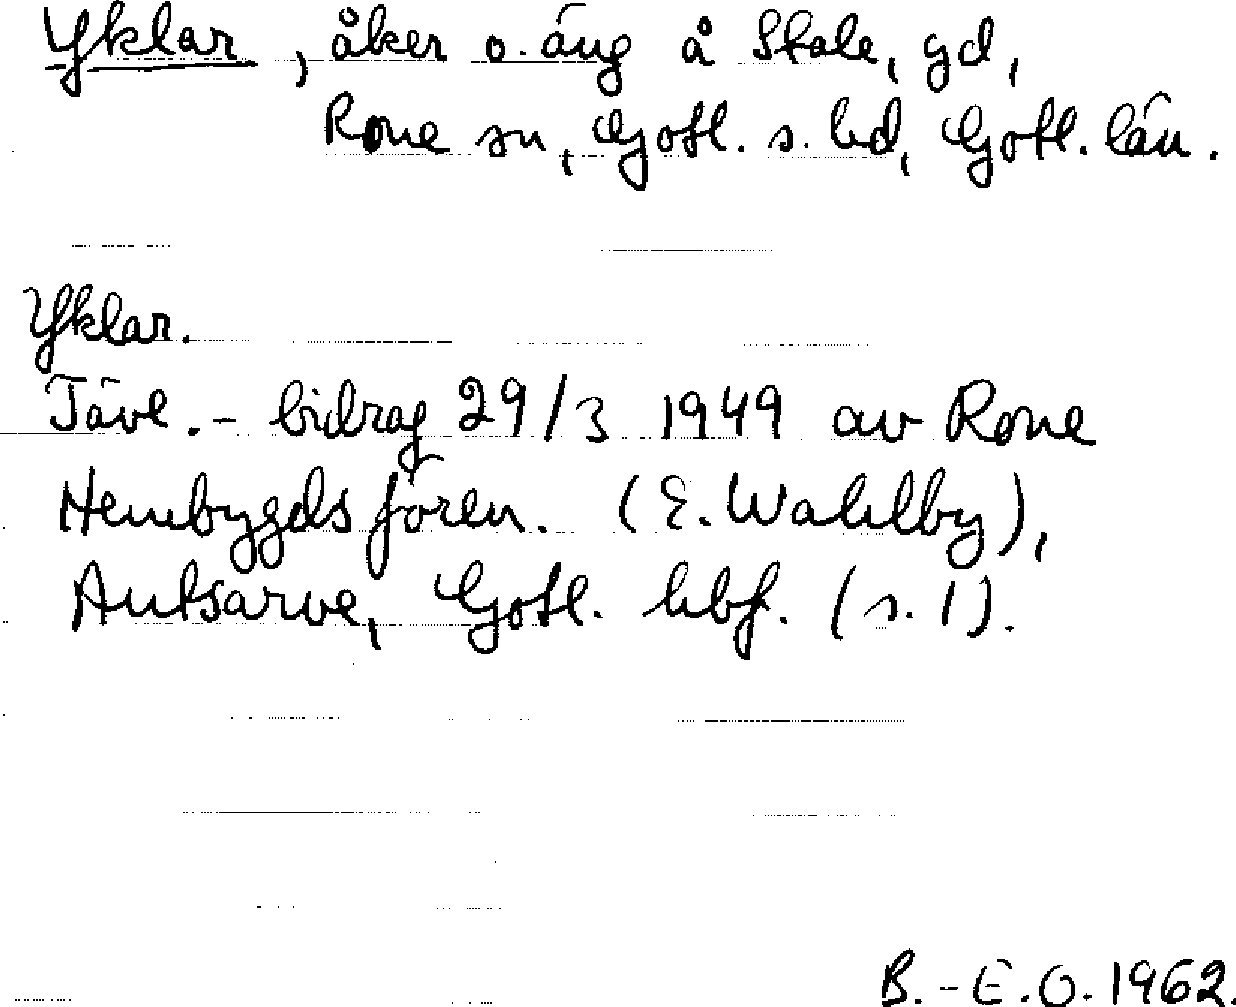 Yklar, åker o. äng å Stale, gd,
Rone sn, Gotl. s. hd, Gotl. län.
Yklar.
Tävl. - bidrag 29/3 1949 av Rone
Hembygdsfören. (E. Wahlby),
Autsarve, Gotl. hbf. (s. 1).
B.-E.O. 1962.